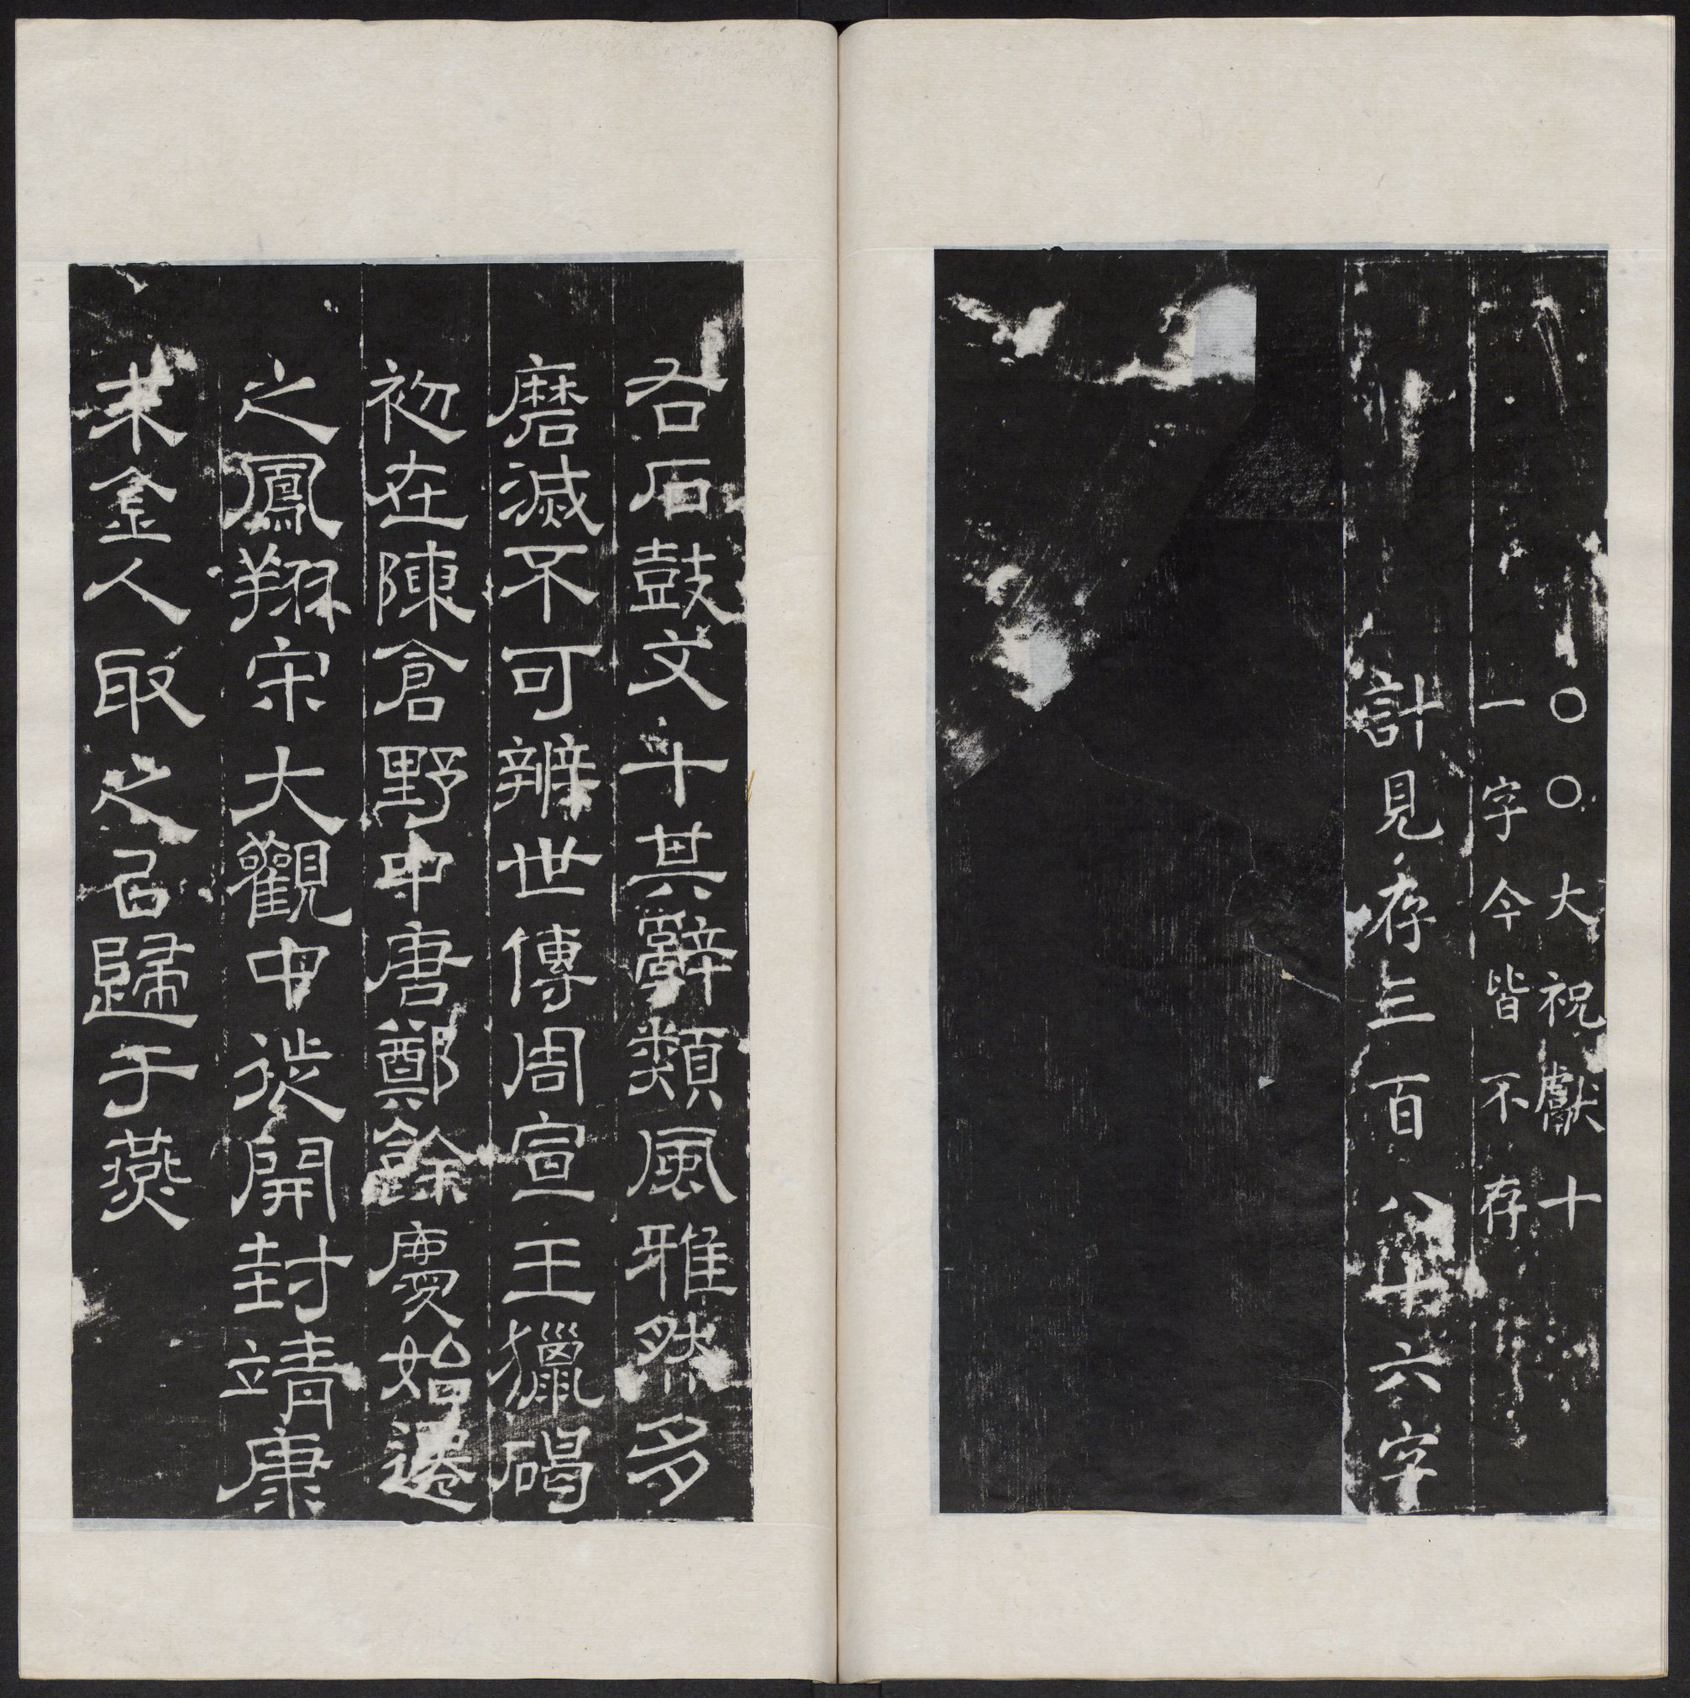 〇〇大祝獻十
一字今皆不存
計見存三百八十六字
右石鼓文十其辭類風雅然多
磨滅不可辨世傳周宣王獵碣
初在陳倉野中唐鄭餘慶始遷
之鳳翔宋大觀中徙開封靖康
末金人取之㠯歸于燕